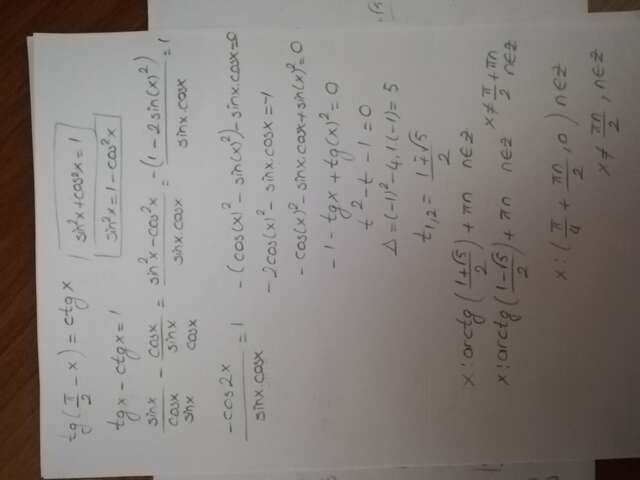 tg(π/2 - x) = ctgx
sin²x+cos²x=1
sin²x=1-cos²x
tgx - ctgx = 1
sinx/cosx - cosx/sinx = sin²x-cos²x/sinx.cosx = -(1-2sin(x)²)/sinx.cosx = 1
sinx cosx
-cos2x/sinx.cosx = 1
-(cos(x)² - sin(x)²) - sinx.cosx=0
-2cos(x)² - sinx.cosx=-1
-cos(x)² - sinx.cosx+sin(x)²=0
-1 - tgx + tg(x)² = 0
t² - t - 1 = 0
Δ = (-1)² - 4.1.(-1) = 5
t1,2 = 1∓√5/2
x: arctg(1+√5/2) + πn n∈Z
x: arctg(1-√5/2) + πn n∈Z
x ≠ π/2 + πn n∈Z
x: (π/4 + πn/2, 0) n∈Z
x ≠ πn/2, n∈Z
√5